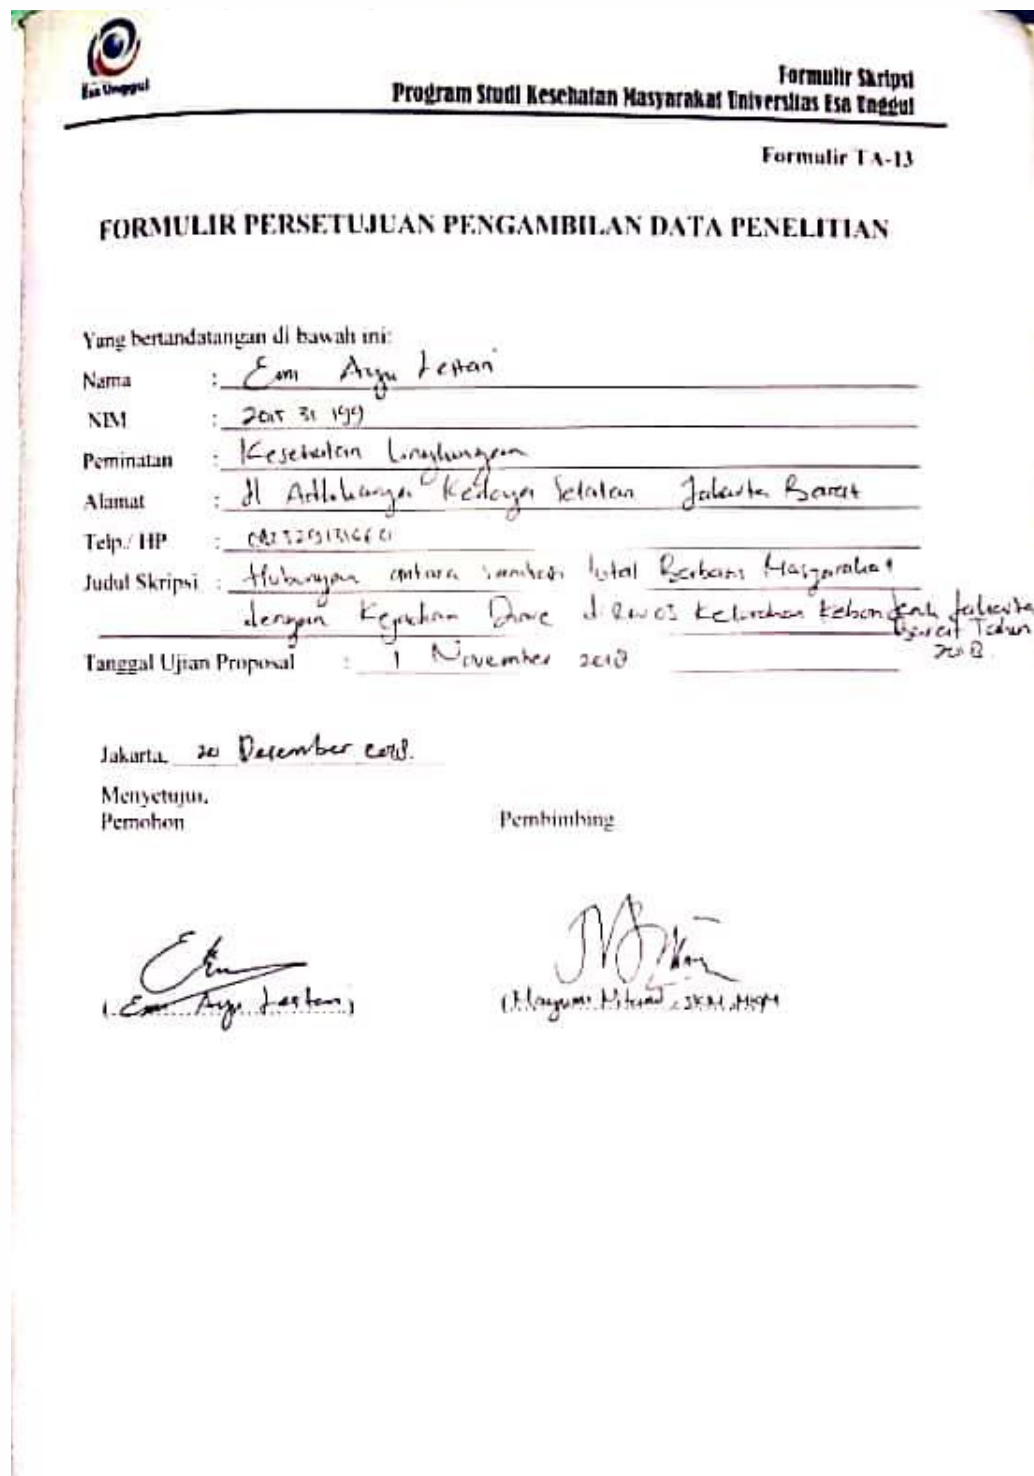 Esa Unggul
Formulir Skripsi
Program Studi Kesehatan Masyarakat Universitas Esa Unggul
Formulir TA-13
FORMULIR PERSETUJUAN PENGAMBILAN DATA PENELITIAN
Yang bertandatangan di bawah ini:
Nama : Emi Ayu Lestari
NIM : 2015 31 199
Peminatan : Kesehatan Lingkungan
Alamat : Jl Kedoya Selatan Jakarta Barat
Telp./ HP :
Judul Skripsi : Hubungan antara Sanitasi Total Berbasis Masyarakat
dengan Kejadian Diare di RW 03 Kelurahan Kebon Jeruk Jakarta
Barat Tahun
2018.
Tanggal Ujian Proposal : 1 November 2018
Jakarta, 20 Desember 2018.
Menyetujui,
Pemohon Pembimbing
(Emi Ayu Lestari) (Mayumi Nitami, SKM, MKM